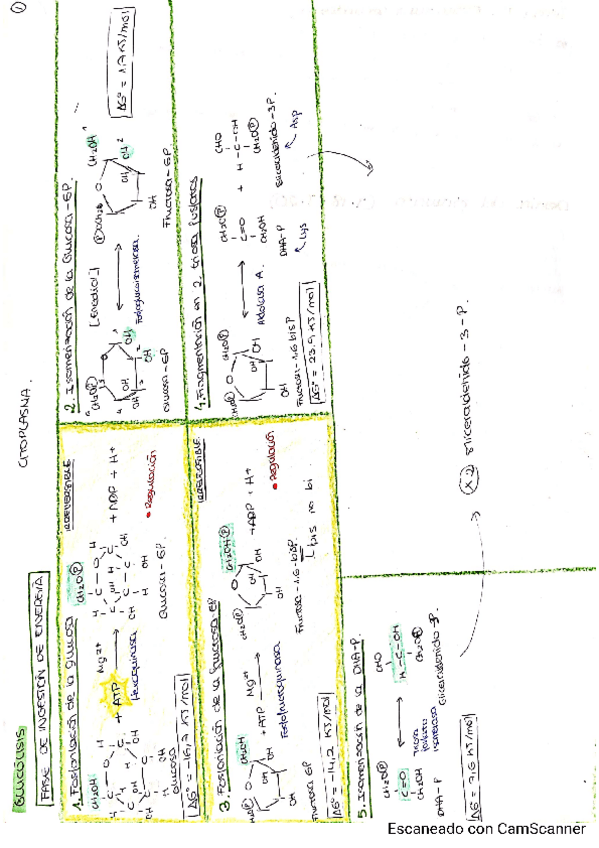 ①
GLUCÓLISIS
CITOPLASMA.
FASE DE INGESTIÓN DE ENERGÍA
1. Fosforilación de la glucosa
IRREVERSIBLE
CH2OH
+ ATP
Mg2+
Hexoquinasa
CH2OⓅ
+ ADP + H+
• Regulación
Glucosa
Glucosa-6P
ΔG° = -16,7 KJ/mol
2. Isomerización de la Glucosa-6P
CH2OⓅ
[Enediol]
Fosfoglucoisomerasa
CH2OH
Glucosa-6P
Fructosa-6P
ΔG° = 1.7 KJ/mol
3. Fosforilación de la fructosa 6P
IRREVERSIBLE
CH2OH
+ ATP
Mg2+
Fosfofructoquinasa
CH2OⓅ
+ ADP + H+
• Regulación
Fructosa 6P
Fructosa-1.6-bisP
bis no bi
ΔG° = -14,2 KJ/mol
4. Fragmentación en 2 triosa fosfatos
CH2OⓅ
Aldolasa A.
CH2OⓅ
C=O
CH2OH
+
CHO
H-C-OH
CH2OⓅ
Fructosa-1.6-bisP
DHA-P
Lys
Gliceraldehido-3P.
Asp
ΔG° = 23.9 KJ/mol
5. Isomerización de la DHA-P.
CH2OⓅ
C=O
CH2OH
DHA-P
Triosa fosfato isomerasa
CHO
H-C-OH
CH2OⓅ
Gliceraldehido-3P.
ΔG° = 7.6 KJ/mol
(x2) Gliceraldehido-3-P.
Escaneado con CamScanner